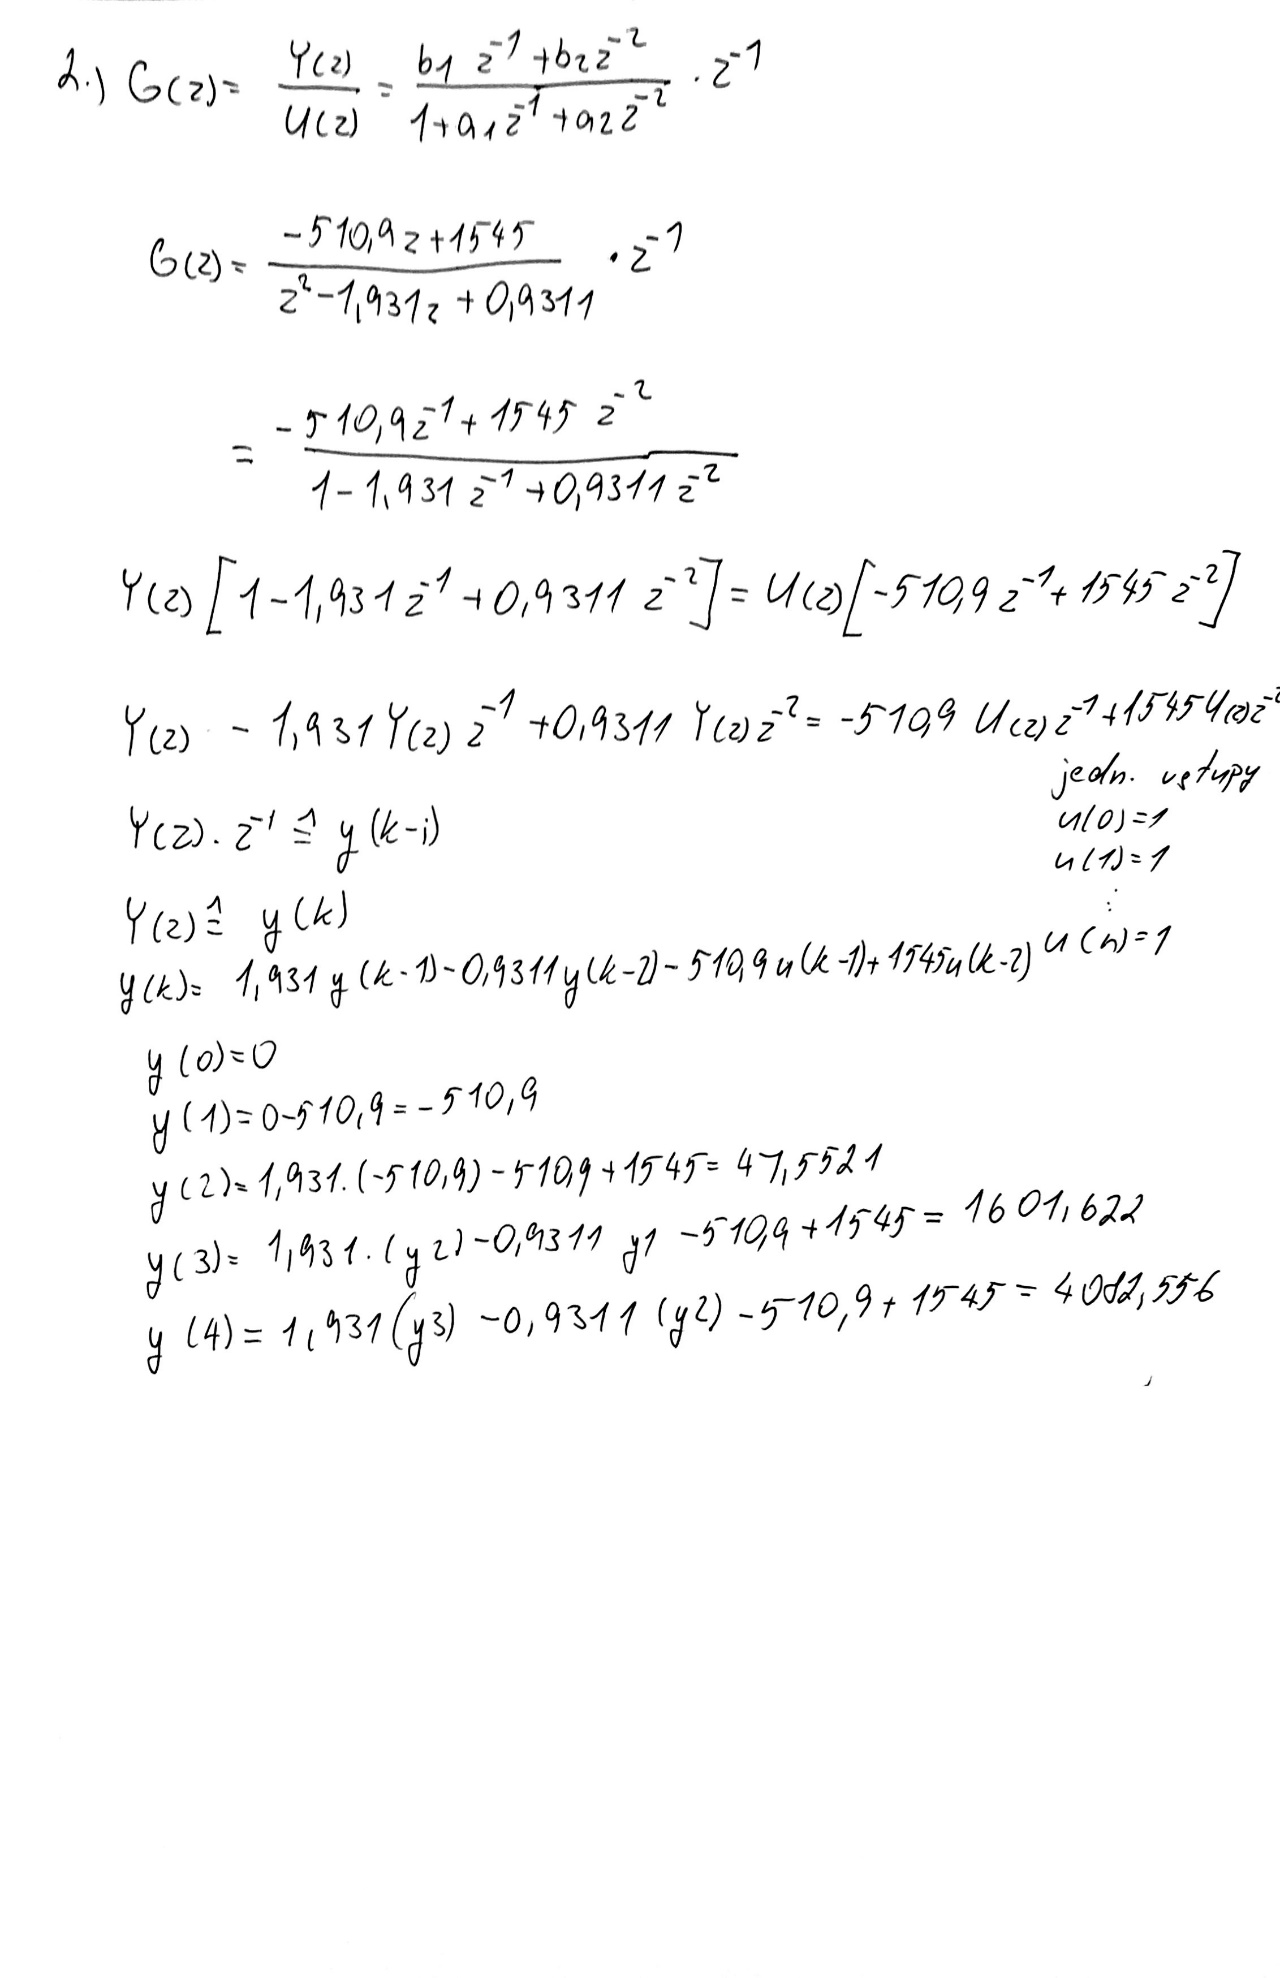 2.) G(z)= Y(z)/U(z) = (b1 z^-1 + b2 z^-2)/(1+a1 z^-1 + a2 z^-2) . z^-1
G(z)= (-510,9z+1545)/(z^2-1,931z+0,9311) . z^-1
= (-510,9z^-1+1545 z^-2)/(1-1,931 z^-1+0,9311 z^-2)
Y(z)[1-1,931z^-1+0,9311 z^-2]=U(z)[-510,9 z^-1+1545 z^-2]
Y(z) - 1,931Y(z) z^-1+0,9311 Y(z)z^-2= -510,9 U(z)z^-1+1545U(z)z^-2
jedn. vstupy
u(0)=1
Y(z).z^-1 ≙ y(k-i)
u(1)=1
⋮
Y(z) ≙ y(k)
u(n)=1
y(k)= 1,931 y(k-1)-0,9311y(k-2)-510,9u(k-1)+1545u(k-2)
y(0)=0
y(1)=0-510,9=-510,9
y(2)=1,931.(-510,9)-510,9+1545= 47,5521
y(3)= 1,931.(y2)-0,9311 y1 -510,9+1545= 1601,622
y(4)=1,931(y3)-0,9311(y2)-510,9+1545= 4082,556